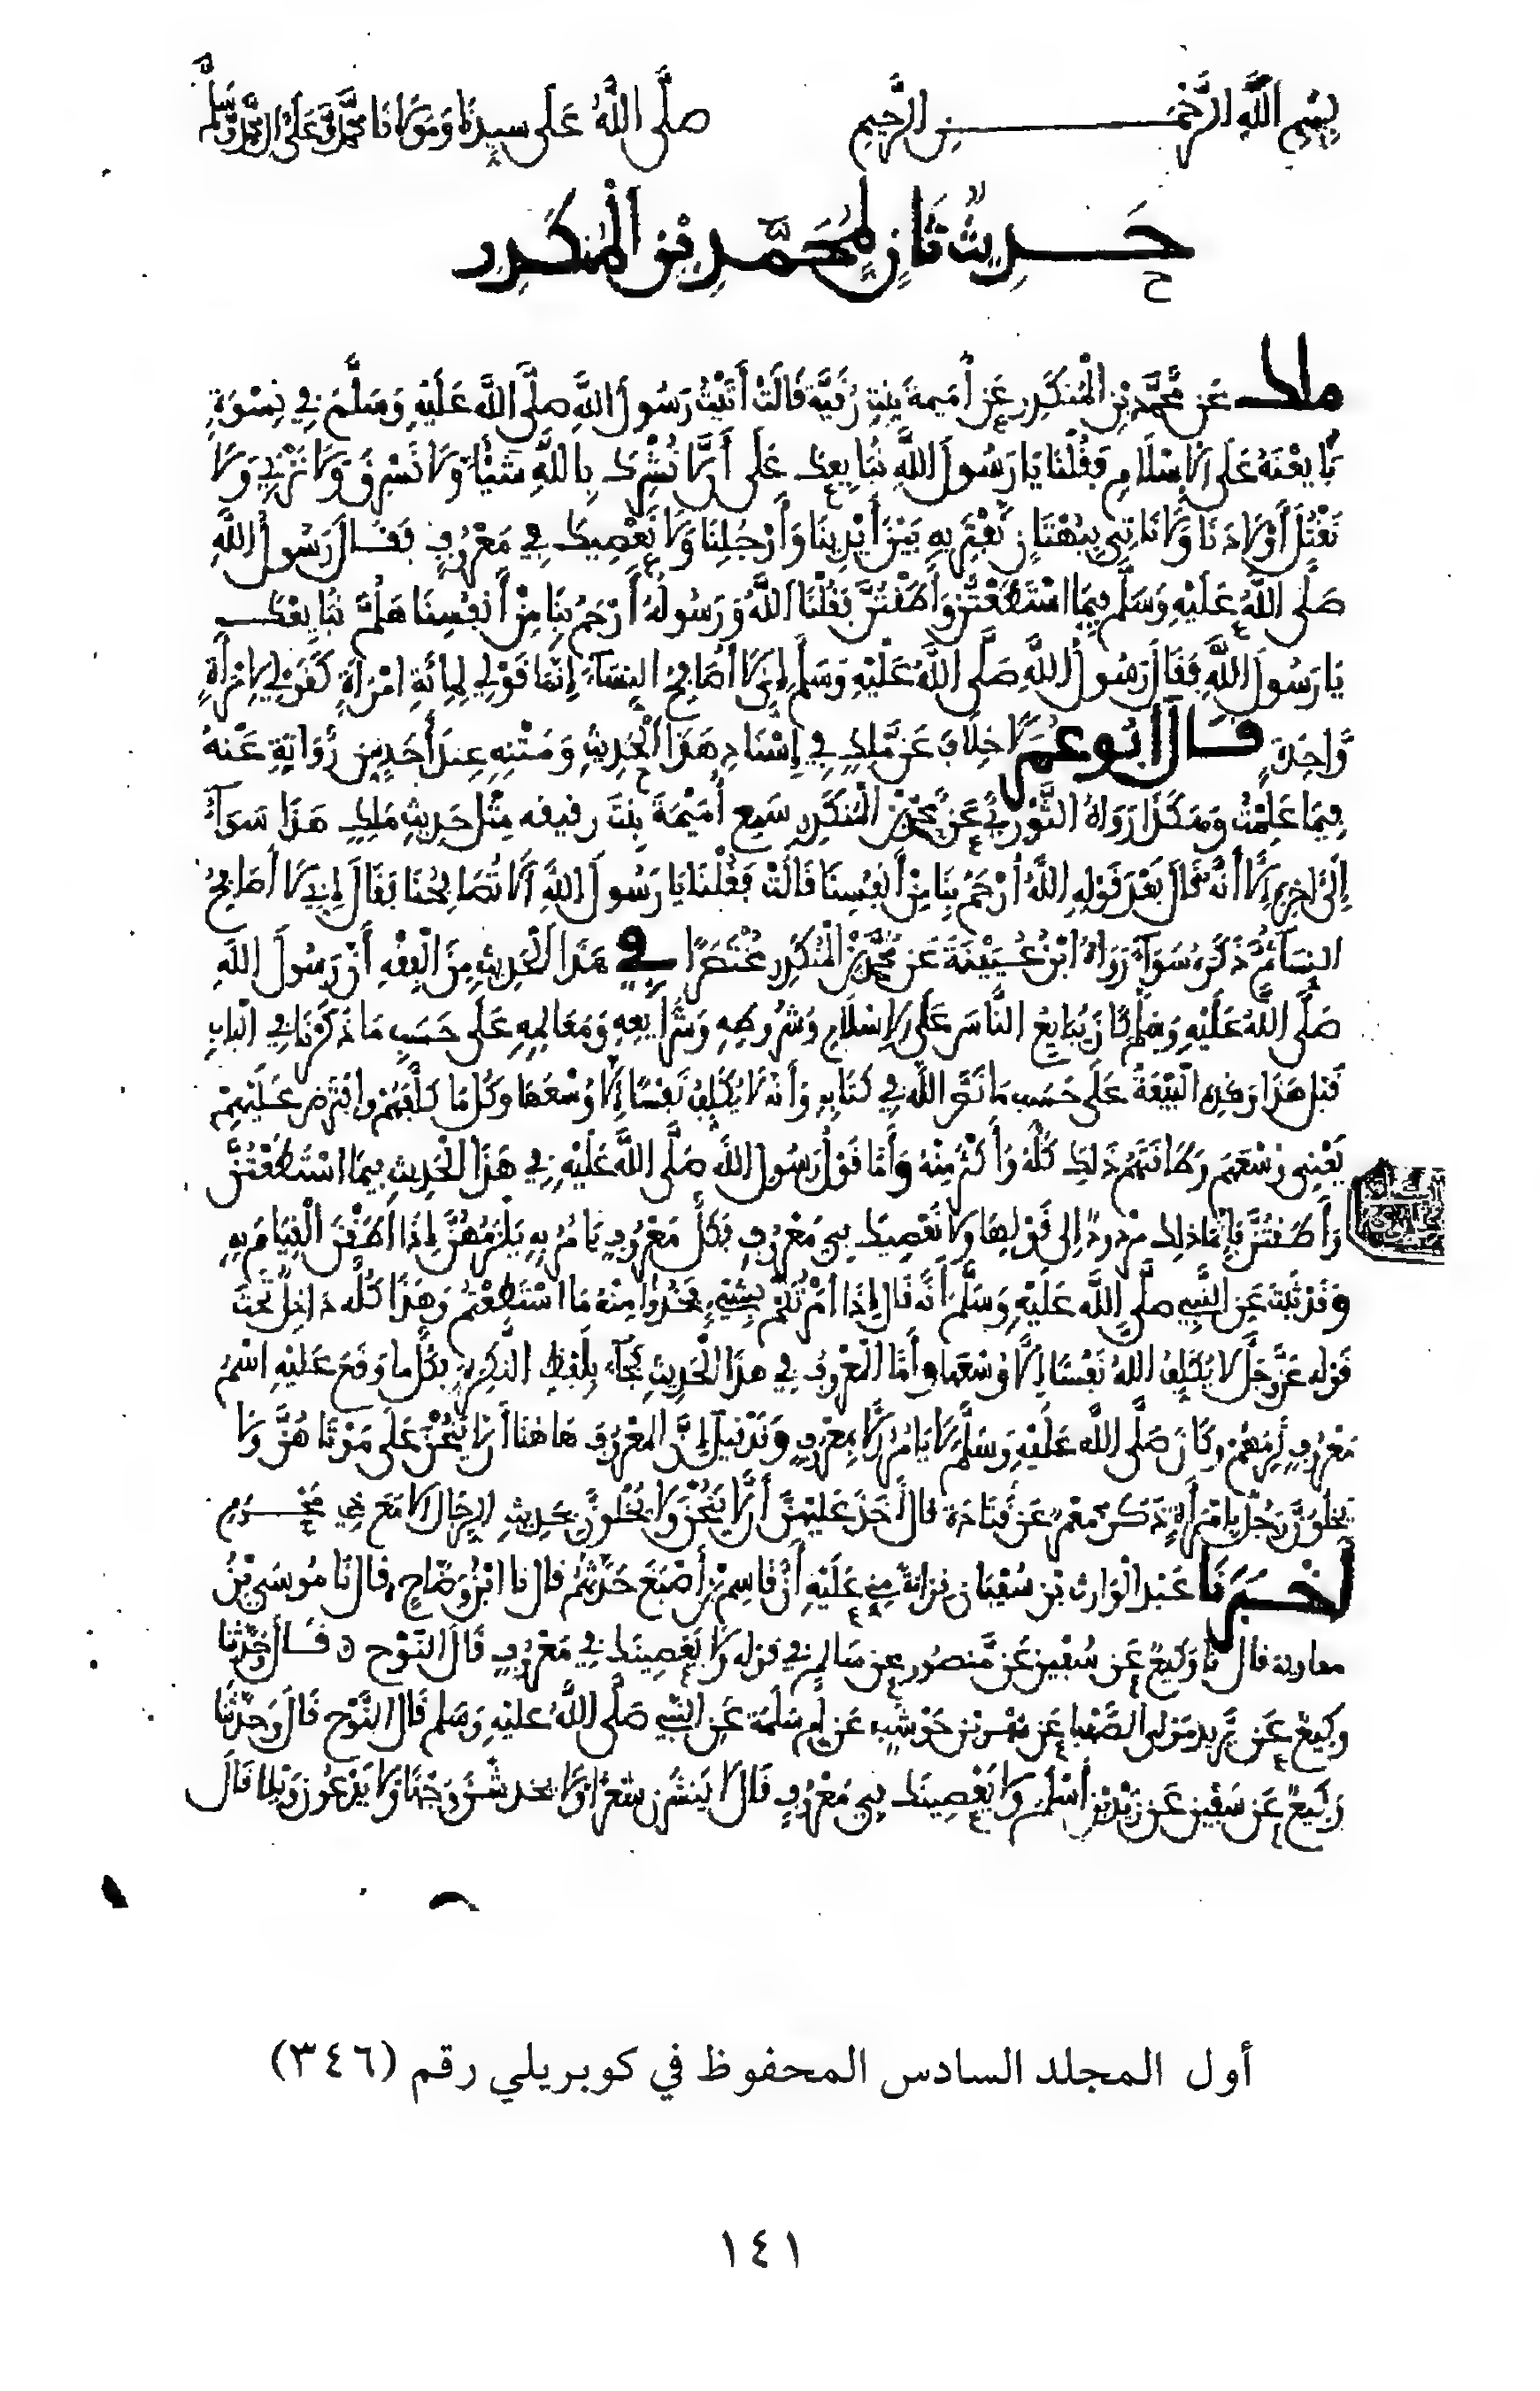 بِسْمِ اللَّهِ الرَّحْمَنِ الرَّحِيمِ صَلَّى اللَّهُ عَلَى سيدنا ومولانا محمد وعلى آل محمد وسلم
حَدِيثٌ ثَانٍ لِمُحَمَّدِ بْنِ الْمُنْكَدِرِ
ملك عَن مُحَمَّدِ بْنِ الْمُنكَدِرِ عَن أُمَيمةَ بِنتِ رُقَيَّةَ قَالَتْ أَتَيْتُ رَسُولَ اللَّهِ صَلَّى اللَّهُ عَلَيْهِ وَسَلَّمَ فِي نِسْوَةٍ
بَايَعْنَهُ عَلَى الإِسْلَامِ فَقُلْنَا يَا رَسُولَ اللَّهِ نُبَايِعُكَ عَلَى أَلَّا نُشْرِكَ بِاللَّهِ شَيْئًا وَلَا نَسْرِقَ وَلَا نَزْنِيَ وَلَا
نَقْتُلَ أَوْلَادَنَا وَلَا نَاتِيَ بِبُهْتَانٍ نَفْتَرِيهِ بَيْنَ أَيْدِينَا وَأَرْجُلِنَا وَلَا نَعْصِيكَ فِي مَعْرُوفٍ فَقَالَ رَسُولُ اللَّهِ
صَلَّى اللَّهُ عَلَيْهِ وَسَلَّمَ فِيمَا اسْتَطَعْتُنَّ وَأَطَقْتُنَّ فَقُلْنَا اللَّهُ وَرَسُولُهُ أَرْحَمُ بِنَا مِنْ أَنفُسِنَا هَلُمَّ نُبَايِعْكَ
يَا رَسُولَ اللَّهِ فَقَالَ رَسُولُ اللَّهِ صَلَّى اللَّهُ عَلَيْهِ وَسَلَّمَ إِنِّي لَا أُصَافِحُ النِّسَاءَ إِنَّمَا قَوْلِي لِمِائَةِ امْرَأَةٍ كَقَوْلِي لِامْرَأَةٍ
وَاحِدَةٍ قَالَ أَبُو عُمَر لَا خِلَافَ عَن مَّلِكٍ فِي إِسْنَادِ هَذَا الْحَدِيثِ وَمَتْنِهِ عِندَ أَحَدٍ مِن رُوَاتِهِ عَنهُ
فِيمَا عَلِمْتُ وَهَكَذَا رَوَاهُ الثَّوْرِيُّ عَن مُحَمَّدِ بْنِ الْمُنْكَدِرِ سَمِعَ أُمَيْمَةَ بِنتَ رقيقه مِثْلَ حَدِيثِ مَلِكٍ هَذَا سَوَاءً
إِلَى آخِرِهِ إِلَّا أَنَّهُ قَالَ بَعْدَ قَوْلِهِ اللَّهُ أَرْحَمُ بِنَا مِنْ أَنفُسِنَا قَالَتْ فَقُلْنَا يَا رَسُولَ اللَّهِ أَلَا تُصَافِحُنَا فَقَالَ إِنِّي لَا أُصَافِحُ
النِّسَاءَ ثُمَّ ذَكَرَهُ سَوَاءً رَوَاهُ ابْنُ عُيَيْنَةَ عَن مُحَمَّدِ بْنِ الْمُنْكَدِرِ مُخْتَصَرًا فِي هَذَا الْحَدِيثِ مِنَ الْفِقْهِ أَنَّ رَسُولَ اللَّهِ
صَلَّى اللَّهُ عَلَيْهِ وَسَلَّمَ كَانَ يُبَايِعُ النَّاسَ عَلَى الإِسْلَامِ وَشُرُوطِهِ وَشَرَائِعِهِ وَمَعَالِمِهِ عَلَى حَسَبِ مَا ذَكَرْنَا فِي الْبَابِ
قَبْلَ هَذَا وَهَذِهِ الْبَيْعَةُ عَلَى حَسَبِ مَا نَصَّ اللَّهُ فِي كِتَابِهِ وَأَنَّهُ لَا يُكَلِّفُ نَفْسًا إِلَّا وُسْعَهَا وَكُلُّ مَا كَلَّفَهُمْ وافْتَرَضَ عَلَيْهِمْ
فَفِي وُسْعِهِمْ وَطَاقَتِهِمْ ذَلِكَ كُلُّهُ وَأَكْثَرُ مِنْهُ وَأَمَّا قَوْلُ رَسُولِ اللَّهِ صَلَّى اللَّهُ عَلَيْهِ فِي هَذَا الْحَدِيثِ فِيمَا اسْتَطَعْتُنَّ
وَأَطَقْتُنَّ فَإِنَّمَا ذَلِكَ مَرْدُودٌ إِلَى قَوْلِهَا وَلَا نَعْصِيكَ فِي مَعْرُوفٍ فَكُلُّ مَعْرُوفٍ يَامُرُ بِهِ يَلْزَمُهُنَّ إِذَا أَطَقْنَ الْقِيَامَ بِهِ
وَقَدْ ثَبَتَ عَنِ النَّبِيِّ صَلَّى اللَّهُ عَلَيْهِ وَسَلَّمَ أَنَّهُ قَالَ إِذَا أَمَرْتُكُمْ بِشَيْءٍ فَخُذُوا مِنْهُ مَا اسْتَطَعْتُمْ وَهَذَا كُلُّهُ دَاخِلٌ تَحْتَ
قَوْلِهِ عَزَّ وَجَلَّ لَا يُكَلِّفُ اللَّهُ نَفْسًا إِلَّا وُسْعَهَا وأَمَّا الْمَعْرُوفُ فِي هذَا الْحَدِيثِ فَجَاءَ بِلَفْظِ النَّكِرَةِ فكُلُّ ما وَقَعَ عَلَيْهِ اسْمُ
مَعْرُوفٍ لَزِمَهُنَّ وَكَانَ صَلَّى اللَّهُ عَلَيْهِ وَسَلَّمَ لَا يَامُرُ إِلَّا بِمَعْرُوفٍ وَقَدْ قِيلَ إِنَّ الْمَعْرُوفَ هَاهُنَا أَلَّا يَنُحْنَ عَلَى مَوْتَاهُنَّ وَلَا
يَخْلُوَنَّ رَجُلٌ بِامْرَأَةٍ ذَكَرَ مَعْمَرٌ عَن قَتَادَةَ قَالَ أَخَذَ عَلَيْهِنَّ أَلَّا يَنُحْنَ وَلَا يَخْلُونَ بِحَدِيثِ الرِّجَالِ إلَّا مَعَ ذِي مَحْرَمٍ
أَخْبَرَنَا عَبْدُ الْوَارِثِ بْنُ سُفْيَانَ قِرَاءَةً مِنِّي عَلَيْهِ أَنَّ قَاسِمَ بْنَ أَصْبَغَ حَدَّثَهُمْ قال نا ابْنُ وَضَّاحٍ قال نَا مُوسَى بْنُ
معاوية قال نَا وَكِيعٌ عَن سُفْيٰنَ عَن مَّنصُورٍ عن سَالِمٍ فِي قَوْلِهِ وَلَا يَعْصِينَكَ فِي مَعْرُوفٍ قَالَ النَّوْح قَالَ وَحَدَّثَنَا
وَكِيعٌ عَن يَزِيدَ مَوْلَى الصَّهْبَا عَن شَهْرِ بْنِ حَوْشَبٍ عَن أُم سَلَمَةَ عَنِ النَّبِيِّ صَلَّى اللَّهُ عَلَيْهِ وَسَلَّم قَالَ النَّوْح قَالَ وَحَدَّثَنَا
وَكِيعٌ عَن سفين عَن زَيْدِ بْنِ أَسْلَمَ وَلَا يَعْصِينَكَ فِي مَعْرُوفٍ قَالَ لَا يَنْشُرْنَ شَعْرًا وَلَا يخدشْنَ وَجْهًا وَلَا يَدْعُونَ وَيْلًا قَالَ
أول المجلد السادس المحفوظ في كوبريلي رقم (٣٤٦)
١٤١